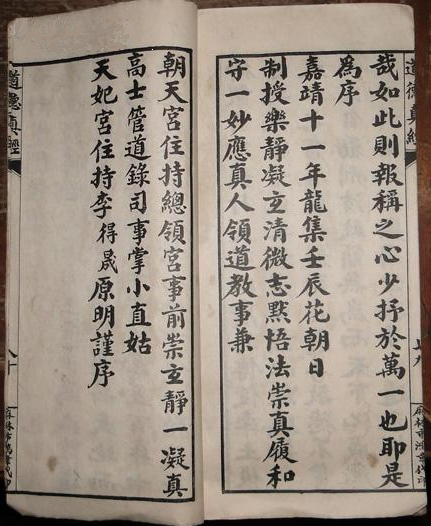 道德真經
哉如此則報稱之心少抒於萬一也耶是
為序
嘉靖十一年龍集壬辰花朝日
制授樂靜凝玄清微志默悟法崇真履和
守一妙應真人領道教事兼
朝天宮住持總領宮事前崇玄靜一凝真
高士管道錄司事掌小直姑
天妃宮住持李得晟原明謹序
道德真經
八十